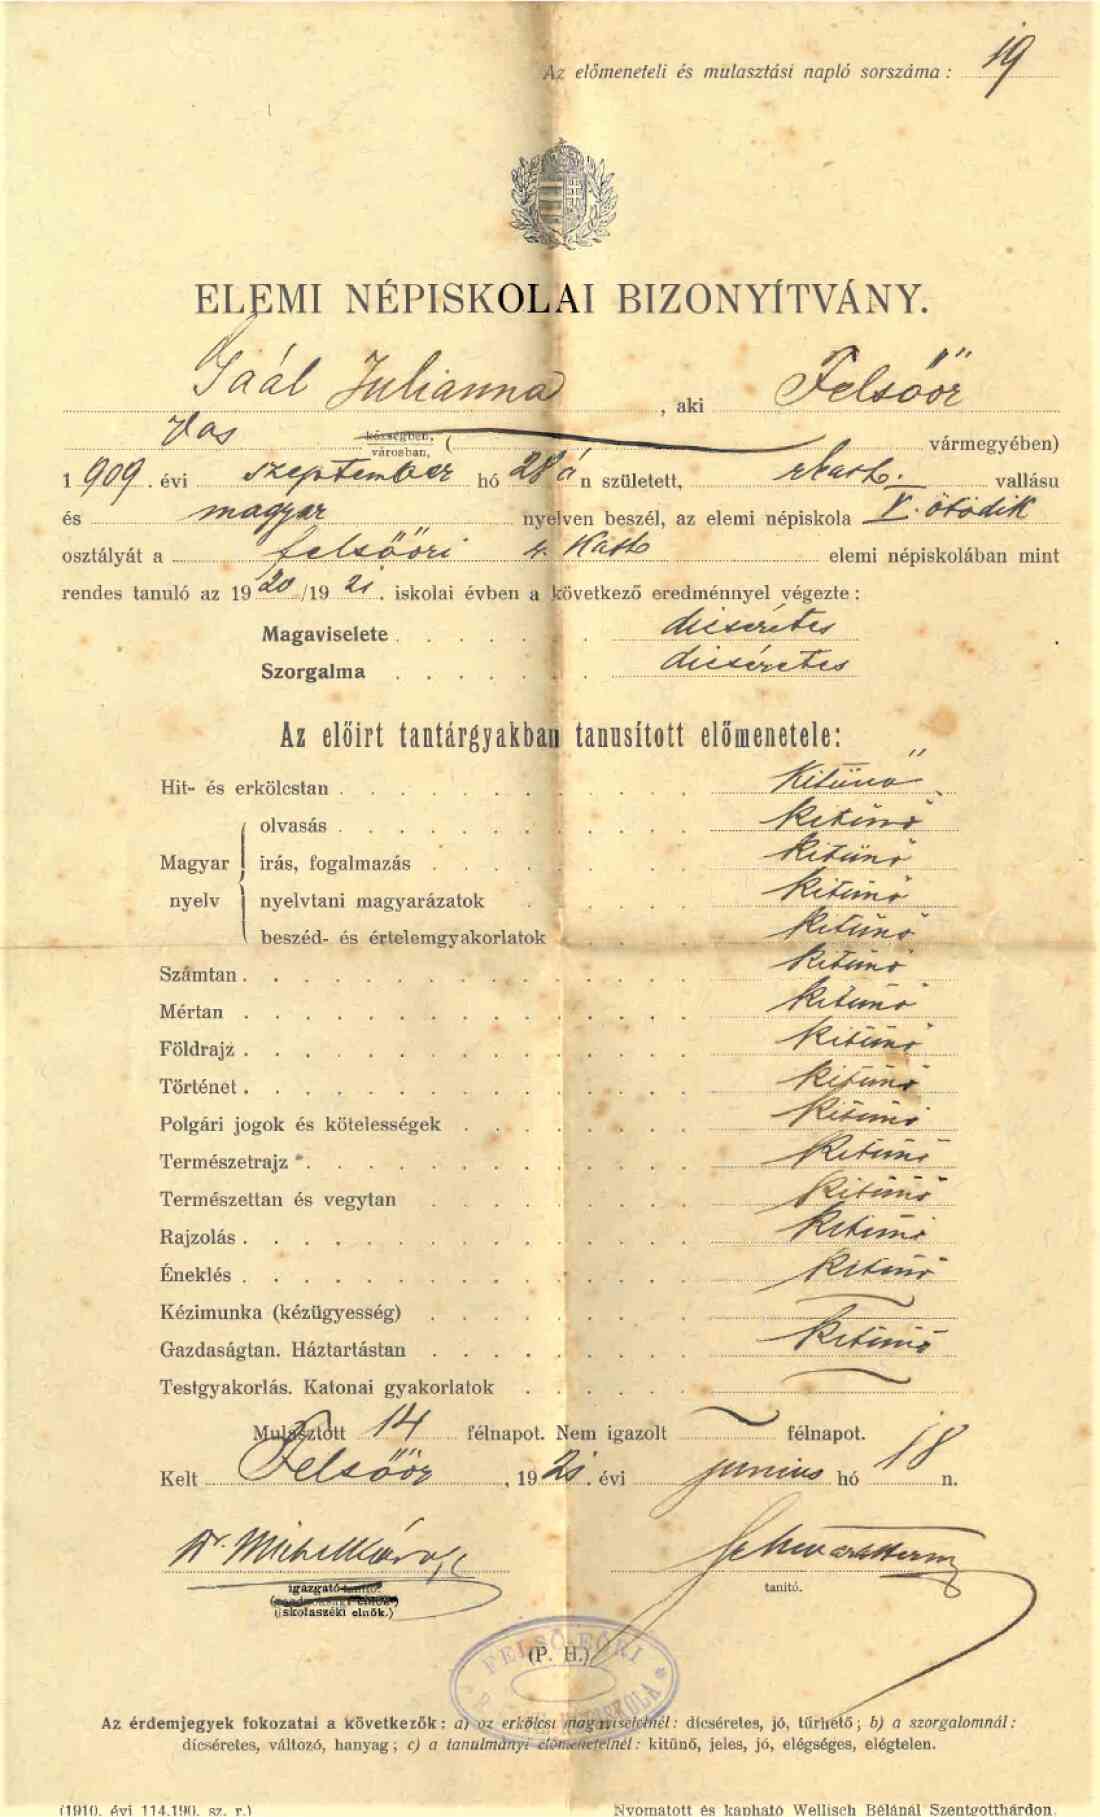 Az előmeneteli és mulasztási napló sorszáma: 19
ELEMI NÉPISKOLAI BIZONYÍTVÁNY.
Gaál Julianna, aki Felsőőr
Vas községben, városban, ( vármegyében)
1909. évi szeptember hó 28 án született, r kath. vallásu
és magyar nyelven beszél, az elemi népiskola V. ötödik
osztályát a felsőőri r. kath elemi népiskolában mint
rendes tanuló az 1920/1921. iskolai évben a következő eredménnyel végezte:
Magaviselete . . . . . . dicséretes
Szorgalma . . . . . . dicséretes
Az előirt tantárgyakban tanusított előmenetele:
Hit- és erkölcstan . . . . . kitünő
Magyar nyelv
olvasás . . . . . kitünő
irás, fogalmazás . . . . . kitünő
nyelvtani magyarázatok . . . . . kitünő
beszéd- és értelemgyakorlatok . . . . kitünő
Számtan . . . . . kitünő
Mértan . . . . . kitünő
Földrajz . . . . . kitünő
Történet . . . . . kitünő
Polgári jogok és kötelességek . . . . . kitünő
Természetrajz . . . . . kitünő
Természettan és vegytan . . . . . kitünő
Rajzolás . . . . . kitünő
Éneklés . . . . . kitünő
Kézimunka (kézügyesség) . . . . .
Gazdaságtan. Háztartástan . . . . . kitünő
Testgyakorlás. Katonai gyakorlatok . . . . .
Mulasztott 14 félnapot. Nem igazolt félnapot.
Kelt Felsőőr, 1921. évi junius hó 18 n.
Dr. Michel Károly
igazgató-tanító.
tanító.
(iskolaszéki elnök.)
(P. H.)
FELSŐ-EŐRI
Az érdemjegyek fokozatai a következők: a) az erkölcsi magaviseletnél: dícséretes, jó, tűrhető; b) a szorgalomnál:
dícséretes, változó, hanyag; c) a tanulmányi előmenetelnél: kitünő, jeles, jó, elégséges, elégtelen.
(1910. évi 114.190. sz. r.)
Nyomatott és kapható Wellisch Bélánál Szentgotthárdon.